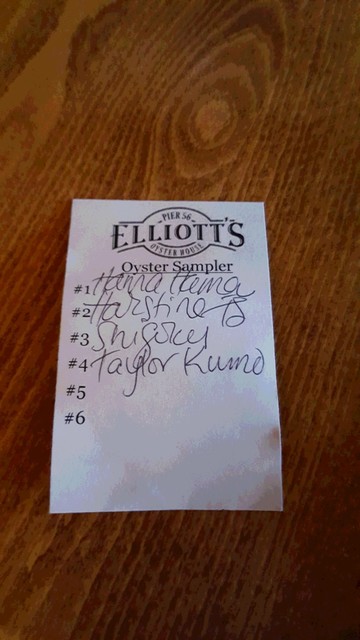 PIER 56
ELLIOTT'S
OYSTER HOUSE
Oyster Sampler
#1 Hama Hama
#2 Harstine
#3 Shigoku
#4 Taylor Kumo
#5
#6